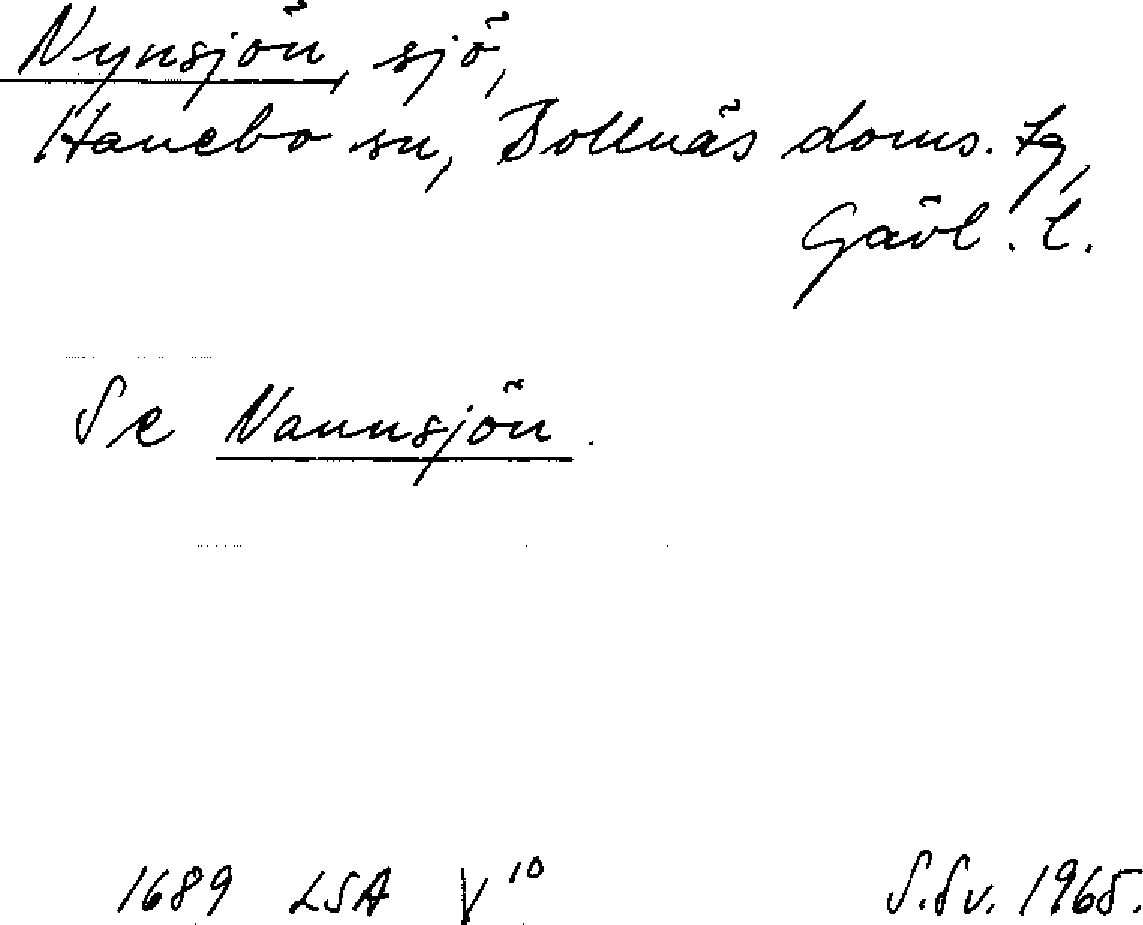 Nynsjön, sjö,
Hanebo sn, Bollnäs doms. tg,
Gävl. l.
Se Nannsjön.
1689 LSA V¹⁰
S.Sv. 1965.